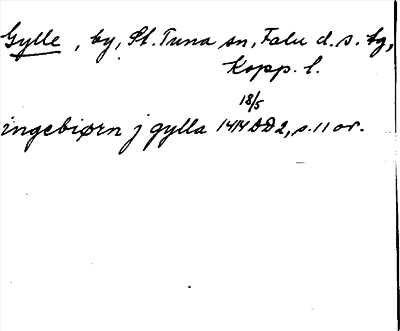 Gylle, by, St. Tuna sn, Falu d. s. bg,
Kopp. l.
18/5
ingebiørn j gylla 1414 DD 2, s. 11 or.